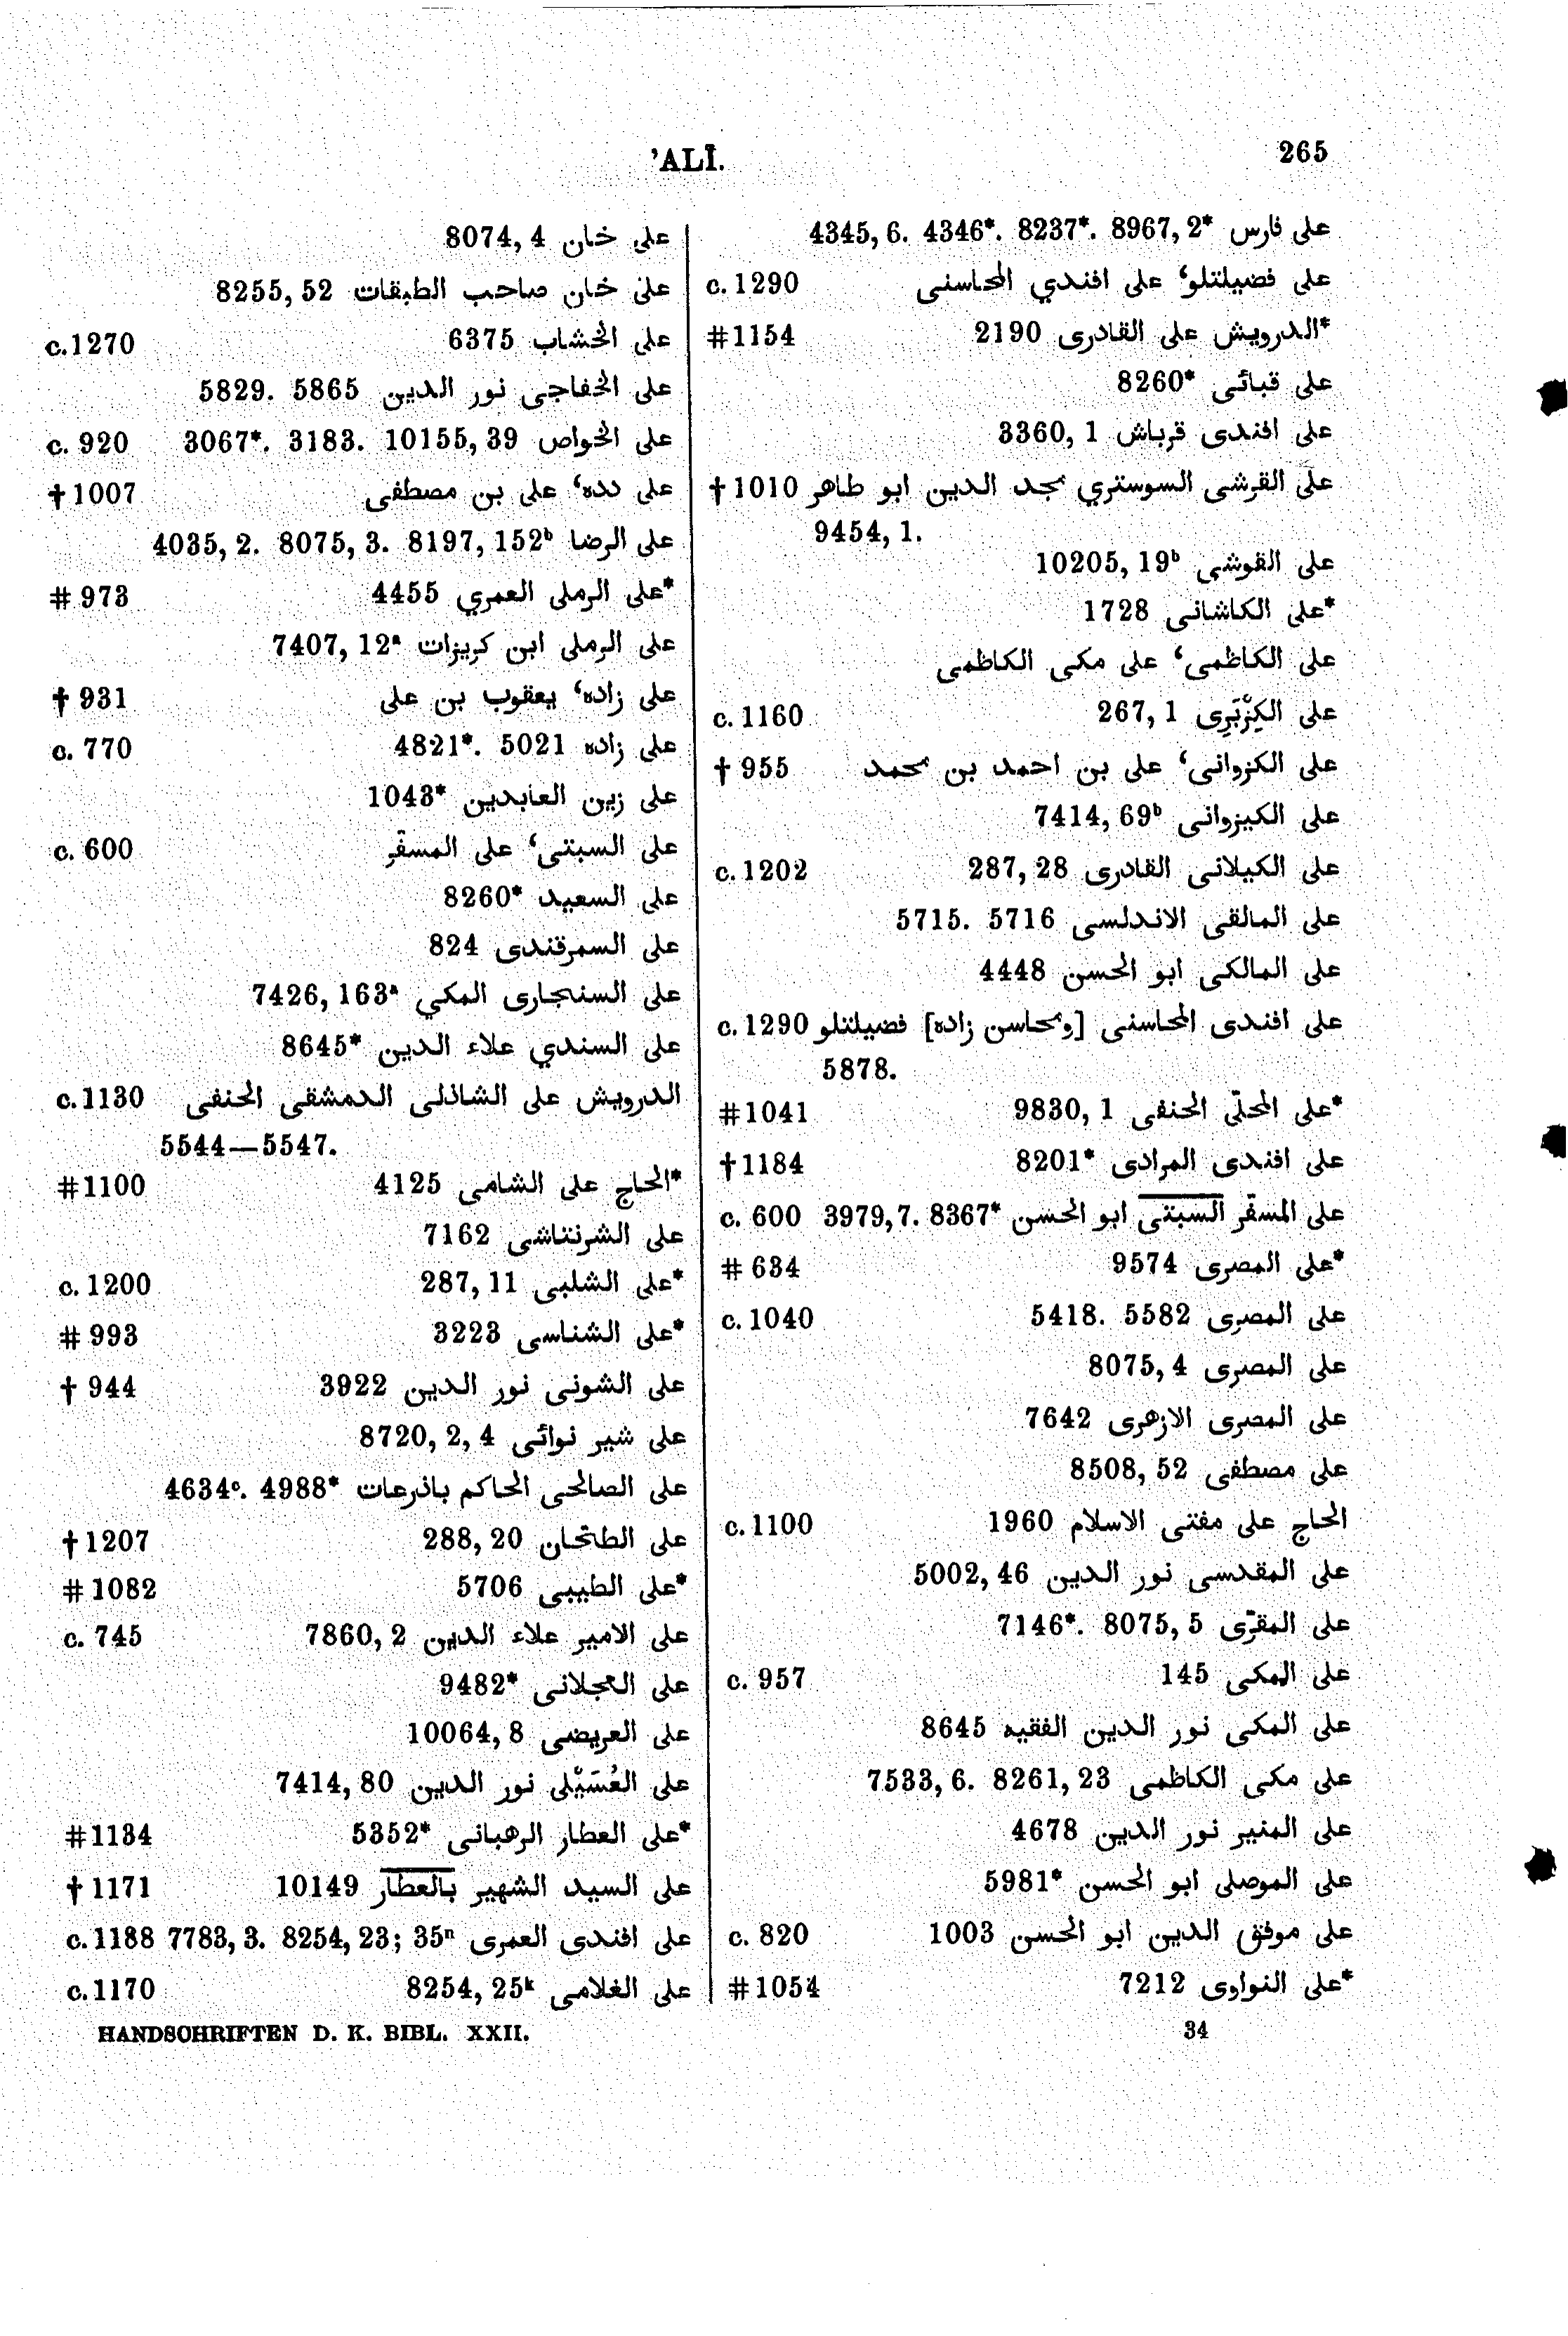 ’ALĪ. 265
على خان 8074, 4
على خان صاحب الطبقات 8255, 52
على الخشاب 6375 c. 1270
على الخفاجى نور الدين 5829. 5865
على الخواص 3067*. 3183. 10155, 39 c. 920
على دده، على بن مصطفى †1007
على الرضا 4035, 2. 8075, 3. 8197, 152ᵇ
*على الرملى العمري 4455 #973
على الرملى ابن كريزات 7407, 12ᵃ
على زاده، يعقوب بن على †931
على زاده 4821*. 5021 c. 770
على زين العابدين 1043*
على السبتى، على المسقّر c. 600
على السعيد 8260*
على السمرقندى 824
على السنجارى المكي 7426, 163ᵃ
على السندي علاء الدين 8645*
الدرويش على الشاذلى الدمشقى الحنفى c. 1130
5544—5547.
*الحاج على الشامى 4125 #1100
على الشرنتاشى 7162
*على الشلبى 287, 11 c. 1200
*على الشناسى 3223 #993
على الشونى نور الدين 3922 †944
على شير نوائى 8720, 2, 4
على الصالحى الحاكم باذرعات 4634ᶜ. 4988*
على الطحّان 288, 20 †1207
*على الطيبى 5706 #1082
على الامير علاء الدين 7860, 2 c. 745
على العجلانى 9482*
على العريضى 10064, 8
على العُسَيْلى نور الدين 7414, 80
*على العطار الرهبانى 5352* #1134
على السيد الشهير بالعطار 10149 †1171
على افندى العمرى 7783, 3. 8254, 23; 35ⁿ c. 1188
على الغلامى 8254, 25ᵏ c. 1170
على فارس 4345, 6. 4346*. 8237*. 8967, 2*
على فضيلتلو، على افندي المحاسنى c. 1290
*الدرويش على القادرى 2190 #1154
على قبائى 8260*
على افندى قرباش 3360, 1
على القرشى السوستري مجد الدين ابو طاهر †1010
9454, 1.
على القوشى 10205, 19ᵇ
*على الكاشانى 1728
على الكاظمى، على مكى الكاظمى
على الكِزْبَرِى 267, 1 c. 1160
على الكزوانى، على بن احمد بن محمد †955
على الكيزوانى 7414, 69ᵇ
على الكيلانى القادرى 287, 28 c. 1202
على المالقى الاندلسى 5715. 5716
على المالكى ابو الحسن 4448
على افندى المحاسنى [ومحاسن زاده] فضيلتلو c. 1290
5878.
*على المحلّى الحنفى 9830, 1 #1041
على افندى المرادى 8201* †1184
على المسقّر السبتى ابو الحسن 3979, 7. 8367* c. 600
*على المصرى 9574 #634
على المصرى 5418. 5582 c. 1040
على المصرى 8075, 4
على المصرى الازهرى 7642
على مصطفى 8508, 52
الحاج على مفتى الاسلام 1960 c. 1100
على المقدسى نور الدين 5002, 46
على المقرّى 7146*. 8075, 5
على المكى 145 c. 957
على المكى نور الدين الفقيه 8645
على مكى الكاظمى 7533, 6. 8261, 23
على المنير نور الدين 4678
على الموصلى ابو الحسن 5981*
على موفق الدين ابو الحسن 1003 c. 820
*على النواوى 7212 #1054
HANDSCHRIFTEN D. K. BIBL. XXII. 34